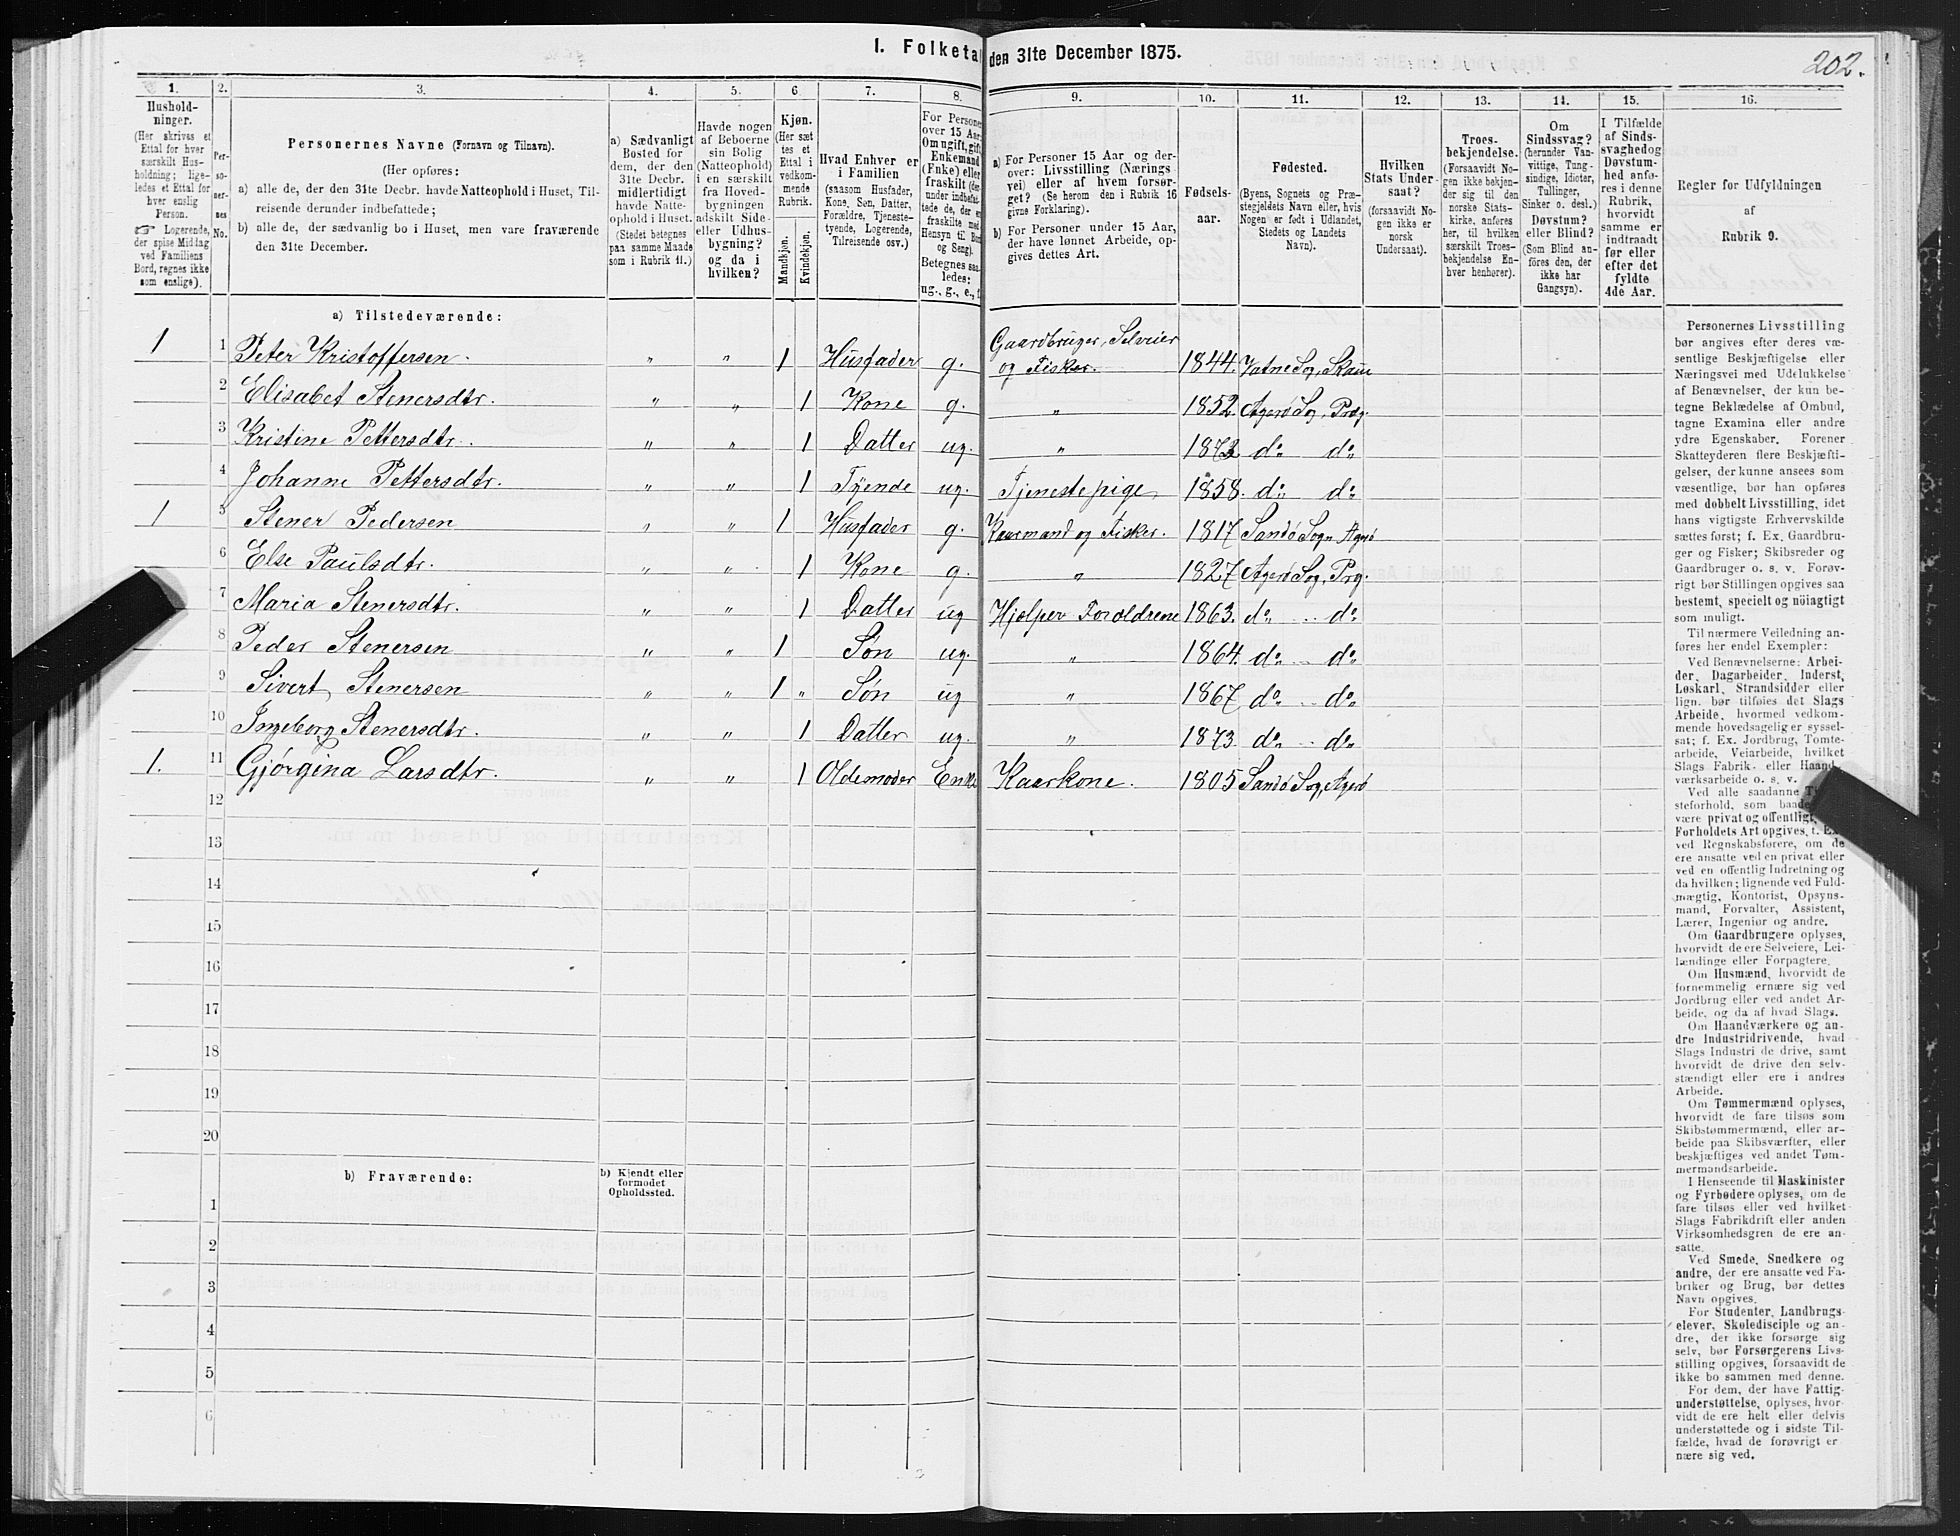 202.
I. Folketal den 31te December 1875.
1. 2. 3. 4. 5. 6. 7. 8. 9. 10. 11. 12. 13. 14. 15. 16.
Hushold-
ninger.
(Her skrives et
Ettal for hver
særskilt Hus-
holdning; lige-
ledes et Ettal for
hver enslig
Person.
☞ Logerende,
der spise Middag
ved Familiens
Bord, regnes ikke
som enslige).
Per-
so-
ner-
nes
No.
Personernes Navne (Fornavn og Tilnavn).
(Her opføres:
a) alle de, der den 31te Decbr. havde Natteophold i Huset, Til-
reisende derunder indbefattede;
b) alle de, der sædvanlig bo i Huset, men vare fraværende
den 31te December.
a) Sædvanligt
Bosted for
dem, der den
31te Decbr.
midlertidigt
havde Natte-
ophold i Huset.
(Stedet betegnes
paa samme Maade
som i Rubrik 11.)
Havde nogen
af Beboerne
sin Bolig
(Natteophold)
i en særskilt
fra Hoved-
bygningen
adskilt Side-
eller Udhus-
bygning?
og da i
hvilken?
Kjøn.
(Her sæt
tes et
Ettal i
vedkom-
mende
Rubrik.
Mandkjøn.
Kvindekjøn.
Hvad Enhver er
i Familien
(saasom Husfader,
Kone, Søn, Datter,
Forældre, Tjeneste-
tyende, Logerende,
Tilreisende osv.)
For Personer
over 15 Aar:
Om ugift, gift,
Enkemand
(Enke) eller
fraskilt (der-
under indbefat-
tede de, der er
fraskilte med
Hensyn til Bord
og Seng).
Betegnes saa-
ledes:
ug., g., e., f.
a) For Personer 15 Aar og der-
over: Livsstilling (Nærings-
vei) eller af hvem forsør-
get? (Se herom den i Rubrik 16
givne Forklaring).
b) For Personer under 15 Aar,
der have lønnet Arbeide, op-
gives dettes Art.
Fødsels-
aar.
Fødested.
(Byens, Sognets og Præ-
stegjeldets Navn eller, hvis
Nogen er født i Udlandet,
Stedets og Landets
Navn).
Hvilken
Stats Under-
saat?
(forsaavidt No-
gen ikke er
norsk
Undersaat).
Troes-
bekjendelse.
(Forsaavidt No-
gen ikke bekjen-
der sig til den
norske Stats-
kirke, anføres
her, til hvilken
særskilt Troes-
bekjendelse En-
hver henhører).
Om
Sindssvag?
(herunder Van-
vittige, Tung-
sindige, Idioter,
Tullinger,
Sinker o. desl.)
Døvstum?
eller Blind?
(Som Blind an-
føres den, der
ikke har
Gangsyn).
I Tilfælde
af Sinds-
svaghed og
Døvstum-
hed anføres
i denne
Rubrik,
hvorvidt
samme er
indtraadt
før eller
efter det
fyldte
4de Aar.
Regler for Udfyldningen
af
Rubrik 9.
a) Tilstedeværende:
1 1 Peter Kristoffersen. „ „ 1 Husfader g. Gaardbruger, Selveier
og Fisker. 1844. Vatne Sog, Skaue
2 Elisabet Stenersdtr. „ „ 1 Kone g. „ 1852. Agerø Sog, Præg.
3 Kristine Pettersdtr. „ „ 1 Datter ug. „ 1873 do do
4 Johanne Pettersdtr. „ „ 1 Tyende ug. Tjenestepige 1858. do do
1 5 Stener Pedersen „ „ 1 Husfader g. Kaarmand og Fisker. 1817 Sandø Sogn Agerø
6 Else Paulsdtr. „ „ 1 Kone g. „ 1827 Agerø Sog, Prg.
7 Maria Stenersdtr. „ „ 1 Datter ug Hjelper Foroldrene 1863. do do
8 Peder Stenersen „ „ 1 Søn ug. „ 1864. do do
9 Sivert Stenersen „ „ 1 „ Søn ug „ 1867 do do
10 Ingeborg Stenersdtr. „ „ 1 Datter ug. „ 1873. do do
1. 11 Gjørgina Larsdtr. „ „ 1 Oldemoder Enke Kaarkone. 1805 Sandø Sog, Agerø
12
13
14
15
16
17
18
19
20
b) Fraværende:
b) Kjendt eller
formodet
Opholdssted.
1
2
3
4
5
6
Personernes Livsstilling
bør angives efter deres væ-
sentlige Beskjæftigelse eller
Næringsvei med Udelukkelse
af Benævnelser, der kun be-
tegne Beklædelse af Ombud,
tagne Examina eller andre
ydre Egenskaber. Forener
Skatteyderen flere Beskjæfti-
gelser, der kunne ansees som
væsentlige, bør han opføres
med dobbelt Livsstilling, idet
hans vigtigste Erhvervskilde
sættes først; f. Ex. Gaardbru-
ger og Fisker; Skibsreder og
Gaardbruger o. s. v. Forøv-
rigt bør Stillingen opgives saa
bestemt, specielt og nöiagtigt
som muligt.
Til nærmere Veiledning an-
føres her endel Exempler:
Ved Benævnelserne: Arbei-
der, Dagarbeider, Inderst,
Løskarl, Strandsidder eller
lign. bør tilføies det Slags
Arbeide, hvormed vedkom-
mende hovedsagelig er syssel-
sat; f. Ex. Jordbrug, Tomte-
arbeide, Veiarbeide, hvilket
Slags Fabrik- eller Haand-
værksarbeide o. s. v.
Ved alle saadanne
steforhold, som baade
være privat og offentligt,
Forholdets Art opgives, t. Ex.
ved Regnskabsførere, om de
ere ansatte ved en privat eller
ved en offentlig Indretning og
da hvilken; lignende ved Fuld-
mægtig, Kontorist, Opsyns-
mand, Forvalter, Assistent,
Lærer, Ingeniør og andre.
Om Gaardbrugere oplyses,
hvorvidt de ere Selveiere, Lei-
lændinge eller Forpagtere.
Om Husmænd, hvorvidt de
fornemmelig ernære sig ved
Jordbrug eller ved andet Ar-
beide, og da af hvad Slags.
Om Haandværkere og an-
dre Industridrivende, hvad
Slags Industri de drive, samt
hvorvidt de drive den selv-
stændigt eller ere i andres
Arbeide.
Om Tømmermænd oplyses,
hvorvidt de fare tilsøs som
Skibstømmermænd, eller ar-
beide paa Skibsværfter, eller
beskjæftiges ved andet Tøm-
mermandsarbeide.
I Henseende til Maskinister
og Fyrbødere oplyses, om de
fare tilsøs eller ved hvilket
Slags Fabrikdrift eller anden
Virksomhedsgren de ere an-
satte.
Ved Smede, Snedkere og
andre, der ere ansatte ved Fa-
briker og Brug, bør dettes
Navn opgives.
For Studenter, Landbrugs-
elever, Skoledisciple og an-
dre, der ikke forsørge sig
selv, bør Forsørgerens Livs-
stilling opgives, forsaavidt de
ikke bo sammen med denne.
For dem, der have Fattig-
understøttelse, oplyses, hvor-
vidt de ere helt eller delvis
understøttede og i sidste Til-
fælde, hvad de forøvrigt er
nære sig ved.